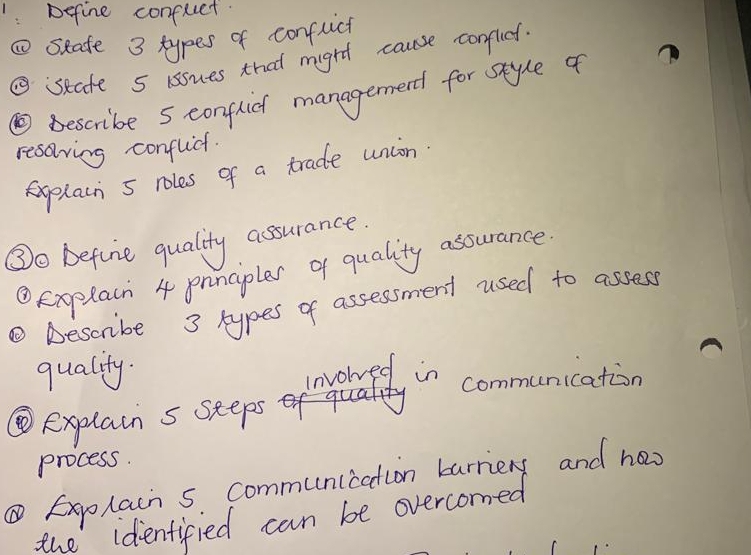 1. Define conflict.
ⓐ State 3 types of conflict
State 5 issues that might cause conflict.
Describe 5 conflict management for style of
resolving conflict.
Explain 5 roles of a trade union.
③ Define quality assurance.
Explain 4 principles of quality assurance.
Describe 3 types of assessment used to assess
quality.
Explain 5 steps of quality involved in communication
process.
Explain 5 communication barriers and how
the identified can be overcomed